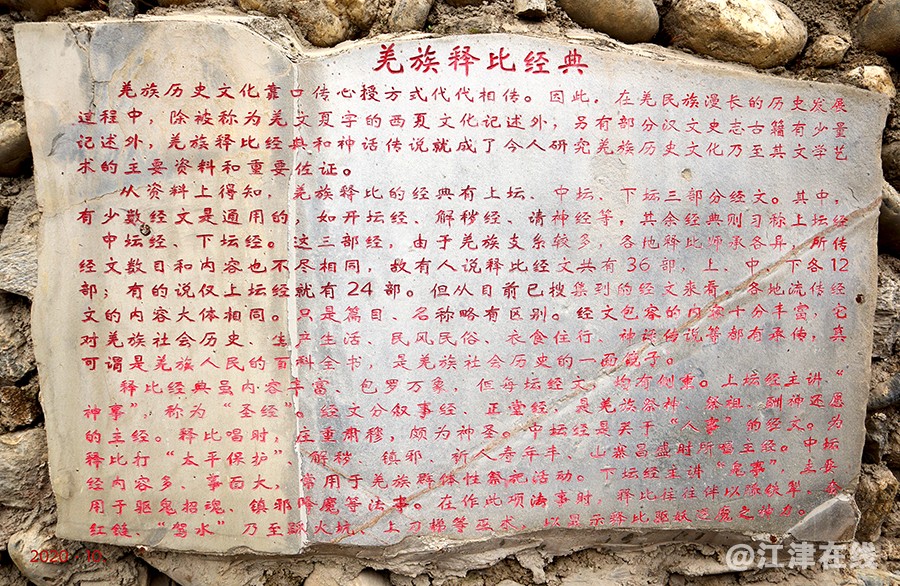 羌族释比经典
羌族历史文化靠口传心授方式代代相传。因此，在羌民族漫长的历史发展
过程中，除被称为羌文夏字的西夏文化记述外，另有部分汉文史志古籍有少量
记述外，羌族释比经典和神话传说就成了今人研究羌族历史文化乃至其文学艺
求的主要资料和重要佐证。
从资料上得知，羌族释比的经典有上坛、中坛、下坛三部分经文。其中，
有少数经文是通用的，如开坛经、解秽经、请神经等，其余经典则习称上坛经
中坛经、下坛经。这三部经，由于羌族支系较多，各地释比师承各异，所传
经文数目和内容也不尽相同，故有人说释比经文共有36部，上、中、下各12
部；有的说仅上坛经就有24部。但从目前已搜集到的经文来看，各地流传经
文的内容大体相同。只是篇目、名称略有区别。经文包容的内容十分丰富，它
对羌族社会历史、生产生活、民风民俗、衣食住行、神话传说等都有承传，真
可谓是羌族人民的百科全书，是羌族社会历史的一面镜子。
释比经典虽内容丰富 包罗万象，但每坛经文 均有侧重。上坛经主讲“
神事”，称为“圣经”。经文分叙事经、正堂经，是羌族祭神、祭祖、酬神还愿
的主经。释比唱时，庄重肃穆，颇为神圣。中坛经是关于“人事”的经文。为
释比行“太平保护”、解秽、镇邪、祈人寿年丰、山寨昌盛时所唱主经。中坛
经内容多、事面大，常用于羌族群体性祭祀活动。下坛经主讲“鬼事”，主要
用于驱鬼招魂、镇邪降魔等法事。在作此项法事时，释比往往伴以
红链、“驾水”乃至 火坑、上刀梯等巫术，以显示释比驱妖
2020 10
@江津在线